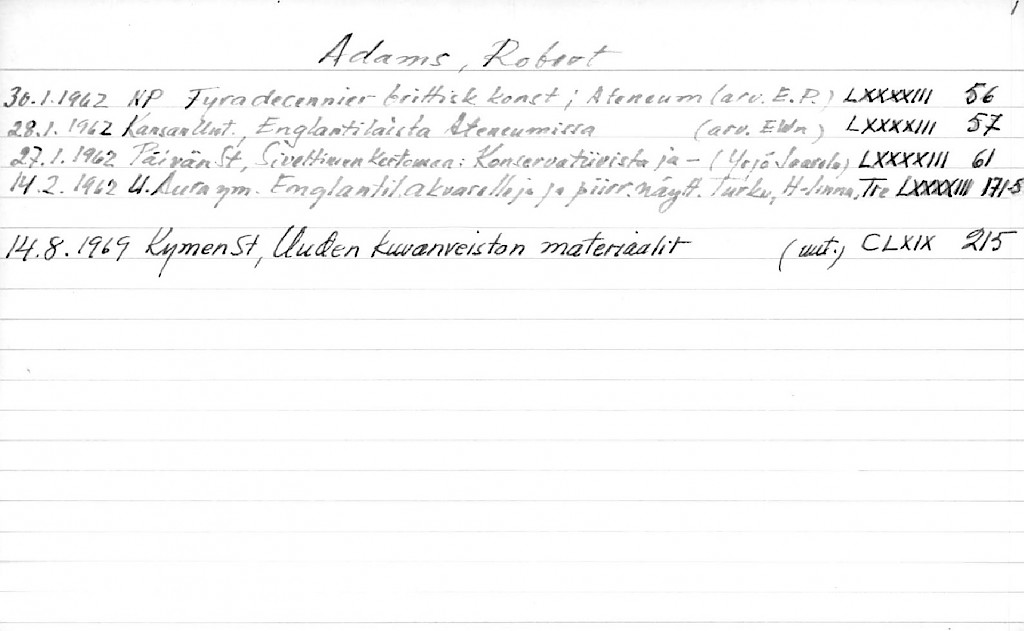 1
Adams, Robert
30.1.1962 NP Fyra decennier brittisk konst i Ateneum (arv. E.P.) LXXXXIII 56
28.1.1962 KansanUut., Englantilaista Ateneumissa (arv. EWn) LXXXXIII 57
27.1.1962 PäivänSt, Siveltimen kertomaa: Konservatiivista ja - (Yrjö) LXXXXIII 61
14.2.1962 U.Aura ym. Englantil. akvarelleja ja piirr.näytt. Turku, H-linna, Tre LXXXXIII 171-5
14.8.1969 KymenSt, Uuden kuvanveiston materiaalit (uut.) CLXIX 215